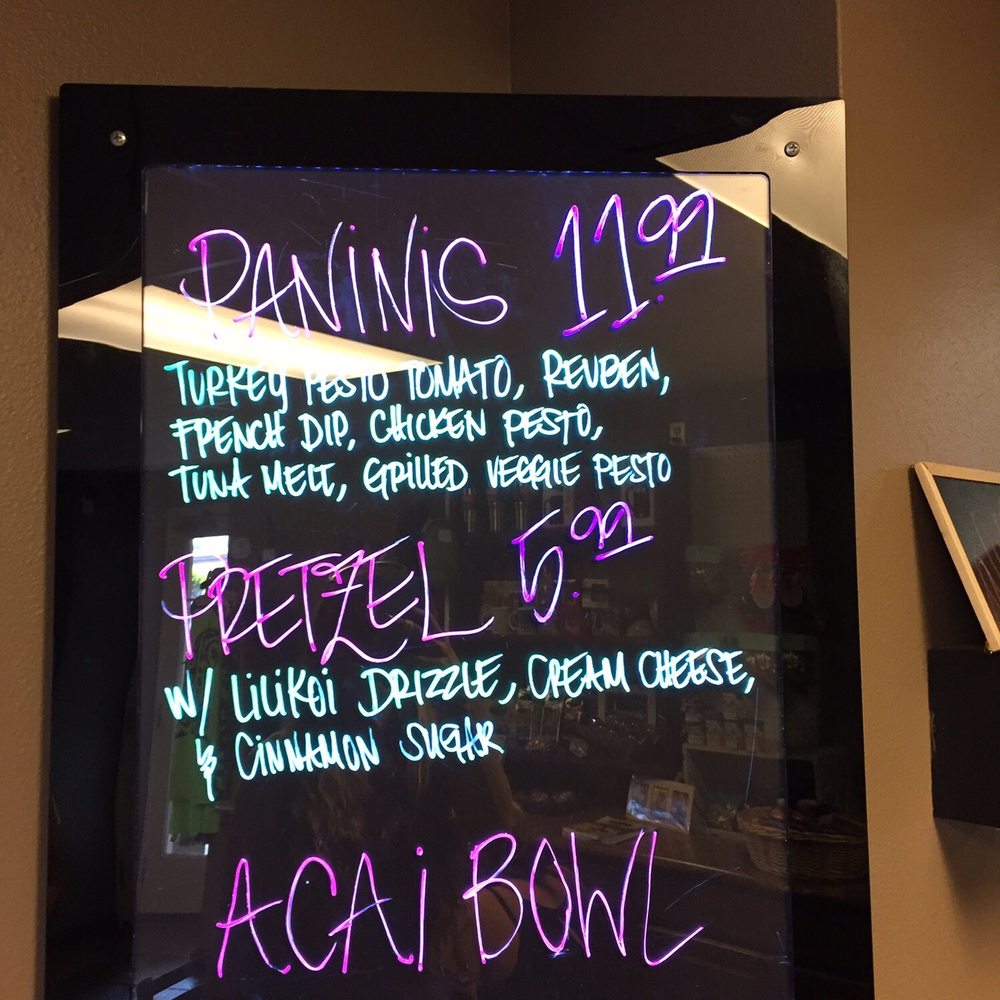 PANINIS 11.99
TURKEY PESTO TOMATO, REUBEN,
FRENCH DIP, CHICKEN PESTO,
TUNA MELT, GRILLED VEGGIE PESTO
PRETZEL 5.99
W/ LILIKOI DRIZZLE, CREAM CHEESE,
& CINNAMON SUGAR
ACAI BOWL